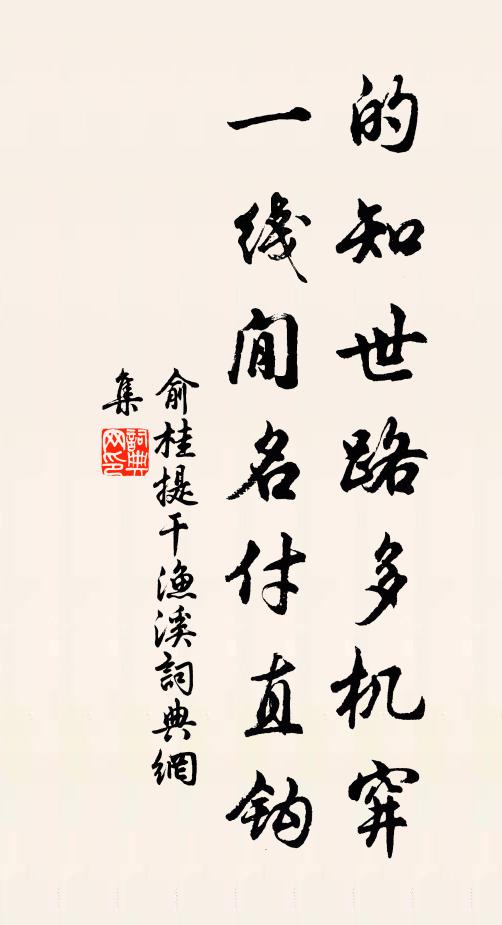 的知世路多机穽
一线闲名付直钩
俞桂提干渔溪詞典網
集
詞典
网印